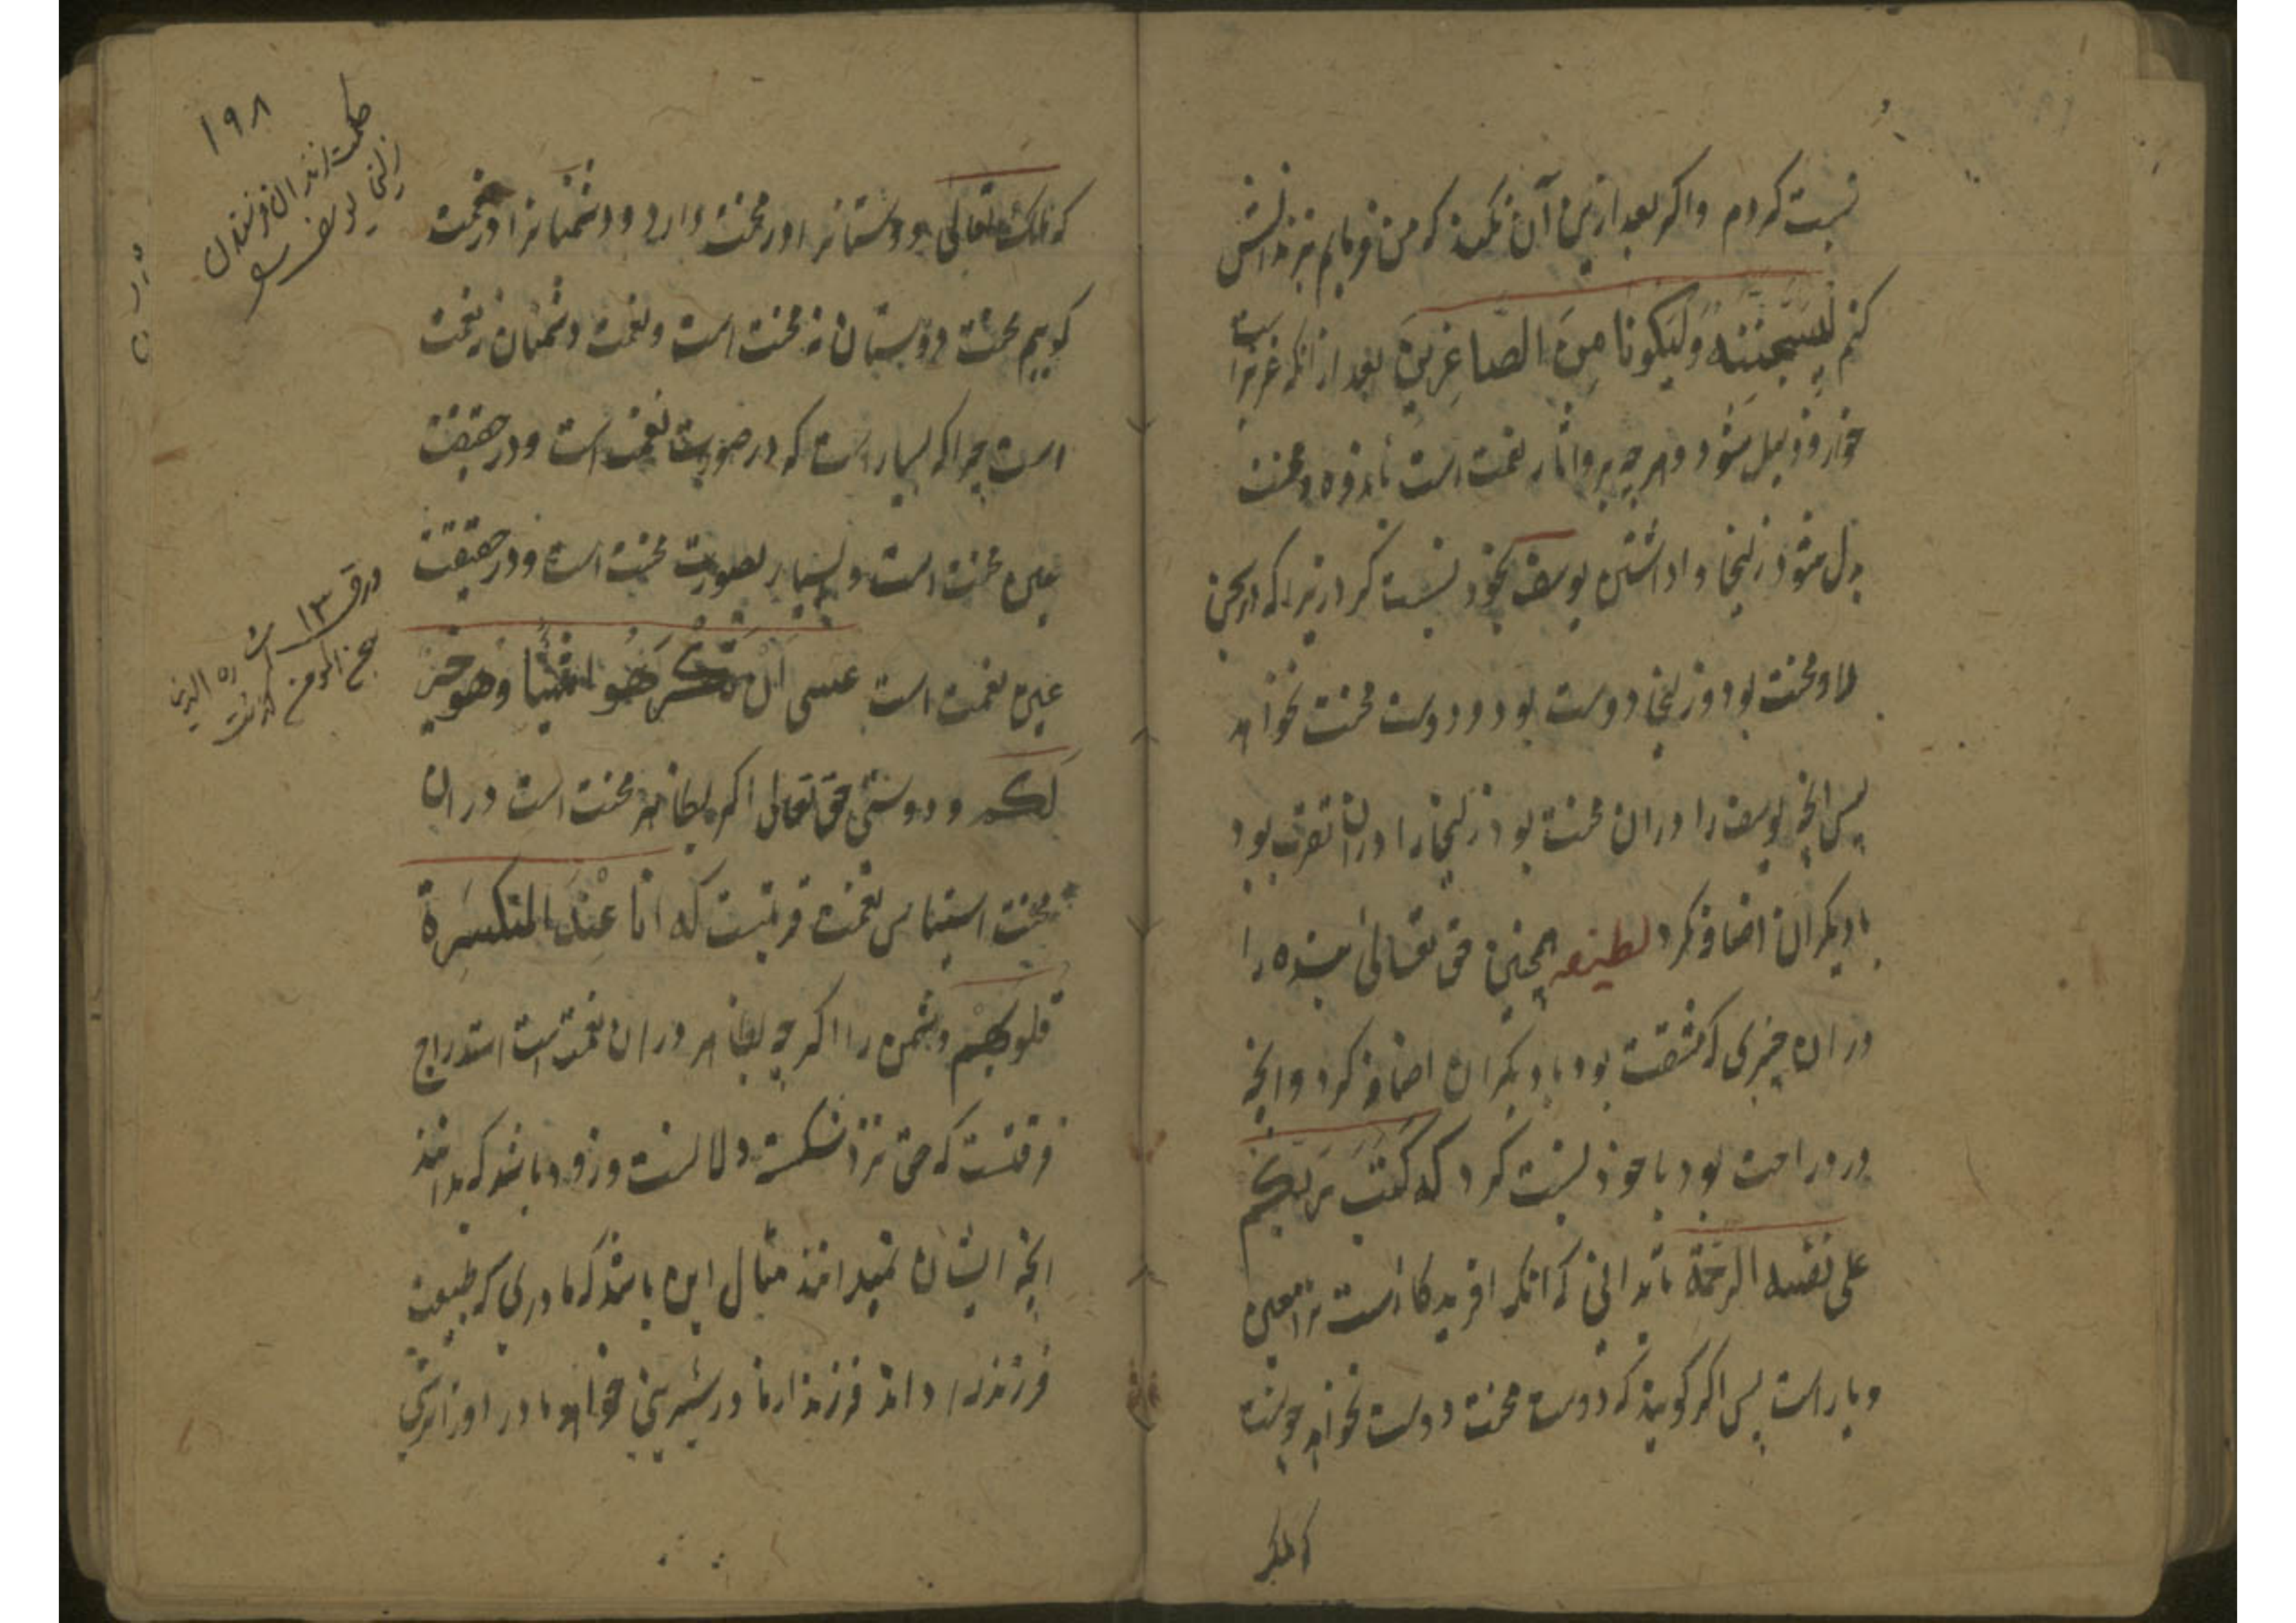 نسبت کردم واکر بعد ازین آن نکند که من فرمایم بزندانش
کنم لَیُسجَنَنَّه وَلَیَکونا مِنَ الصاغِرینَ بعد ازانکه عزیز است
خوار وذلیل شود وهرچه برو اثار نعمت است باندوه ومحنت
بدل شود زلیخا واداشتن یوسف بخود نسبت کرد زیرا که در سجن
بلا ومحنت بود وزلیخا دوست بود ودوست محنت نخواهد
پس انچه یوسف را دران محنت بود زلیخا را دران تصرف بود
با دیکران اضافه کرد لطیفه همچنین حق تعالی بنده را
دران چیزی که مشقت بود با دیکران اضافه کرد وانچه
درو راحت بود با خود نسبت کرد که کَتَبَ رَبکم
علی نفسه الرحمة تا بدانی که انکه افریدکارست ترا معین
ویار است پس اکر کویند که دوست محنت دوست نخواهد چونست
که ملک
۱۹۸
حکمت اندران فرستادن
زلیخا یوسف
که ملک تعالی دوستانرا در محنت دارد ودشمنانرا در نعمت
کوییم محنت دوستان نه محنت است ونعمت دشمنان نه نعمت
است چرا که بسیار است که در صورت نعمت است ودر حقیقت
عین محنت است وبسیار بصورت محنت است ودر حقیقت
عین نعمت است عسی ان تکرَهُوا شَیئا وهو خیر
لَکم ودوستی حق تعالی اکر بظاهر محنت است دران
محنت استیناس نعمت قربتست که انا عِندَ المنکسِرة
قلوبهم ودشمن را اکرچه بظاهر دران نعمت است استدراج
فرقتست که حق نزد شکسته دلانست وزود باشد که بدانند
انچه ایشان نمیدانند مثال این باشد که مادری که طبیعت
فرزند را داند فرزند ازمادر شیرینی خواهد مادر اورا ترشی
ورق ۱۳